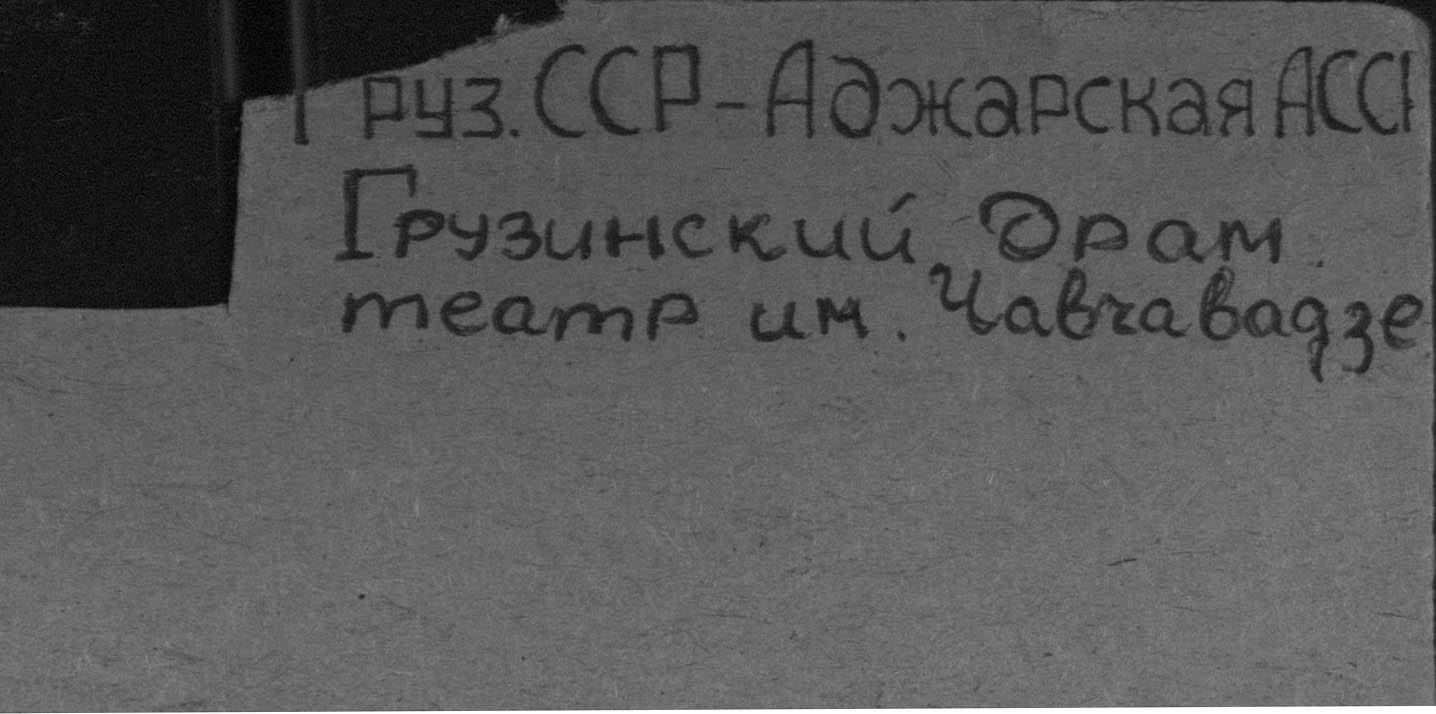 Груз. ССР - Аджарская АССР
Грузинский драм.
театр им. Чавчавадзе